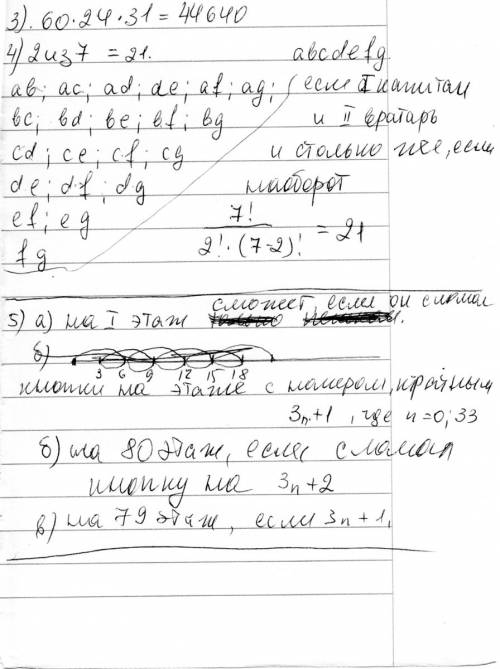 3). 60·24·31 = 44640
4) 2 из 7 = 21. abcdefg
ab; ac; ad; de; af; ag; (если I капитан
bc; bd; be; bf; bg и II вратарь
cd; ce; cf; cg и столько же, если
de; df; dg наоборот
ef; eg 7! / 2!·(7-2)! = 21
fg
5) а) на I этаж сможет, если он сломал
б)
3 6 9 12 15 18
кнопки на этаже с номером, кратным
3n+1, где n=0; 33
б) на 80 этаж, если сломал
кнопку на 3n+2
в) на 79 этаж, если 3n+1.